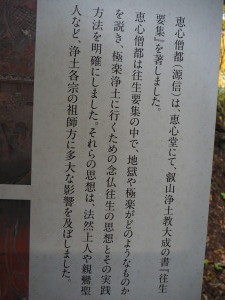 恵心僧都（源信）は、恵心堂にて、叡山浄土教大成の書『往生
要集』を著しました。
恵心僧都は往生要集の中で、地獄や極楽がどのようなものか
を説き、極楽浄土に行くための念仏往生の思想とその実践
方法を明確にしました。それらの思想は、法然上人や親鸞聖
人など、浄土各宗の祖師方に多大な影響を及ぼしました。